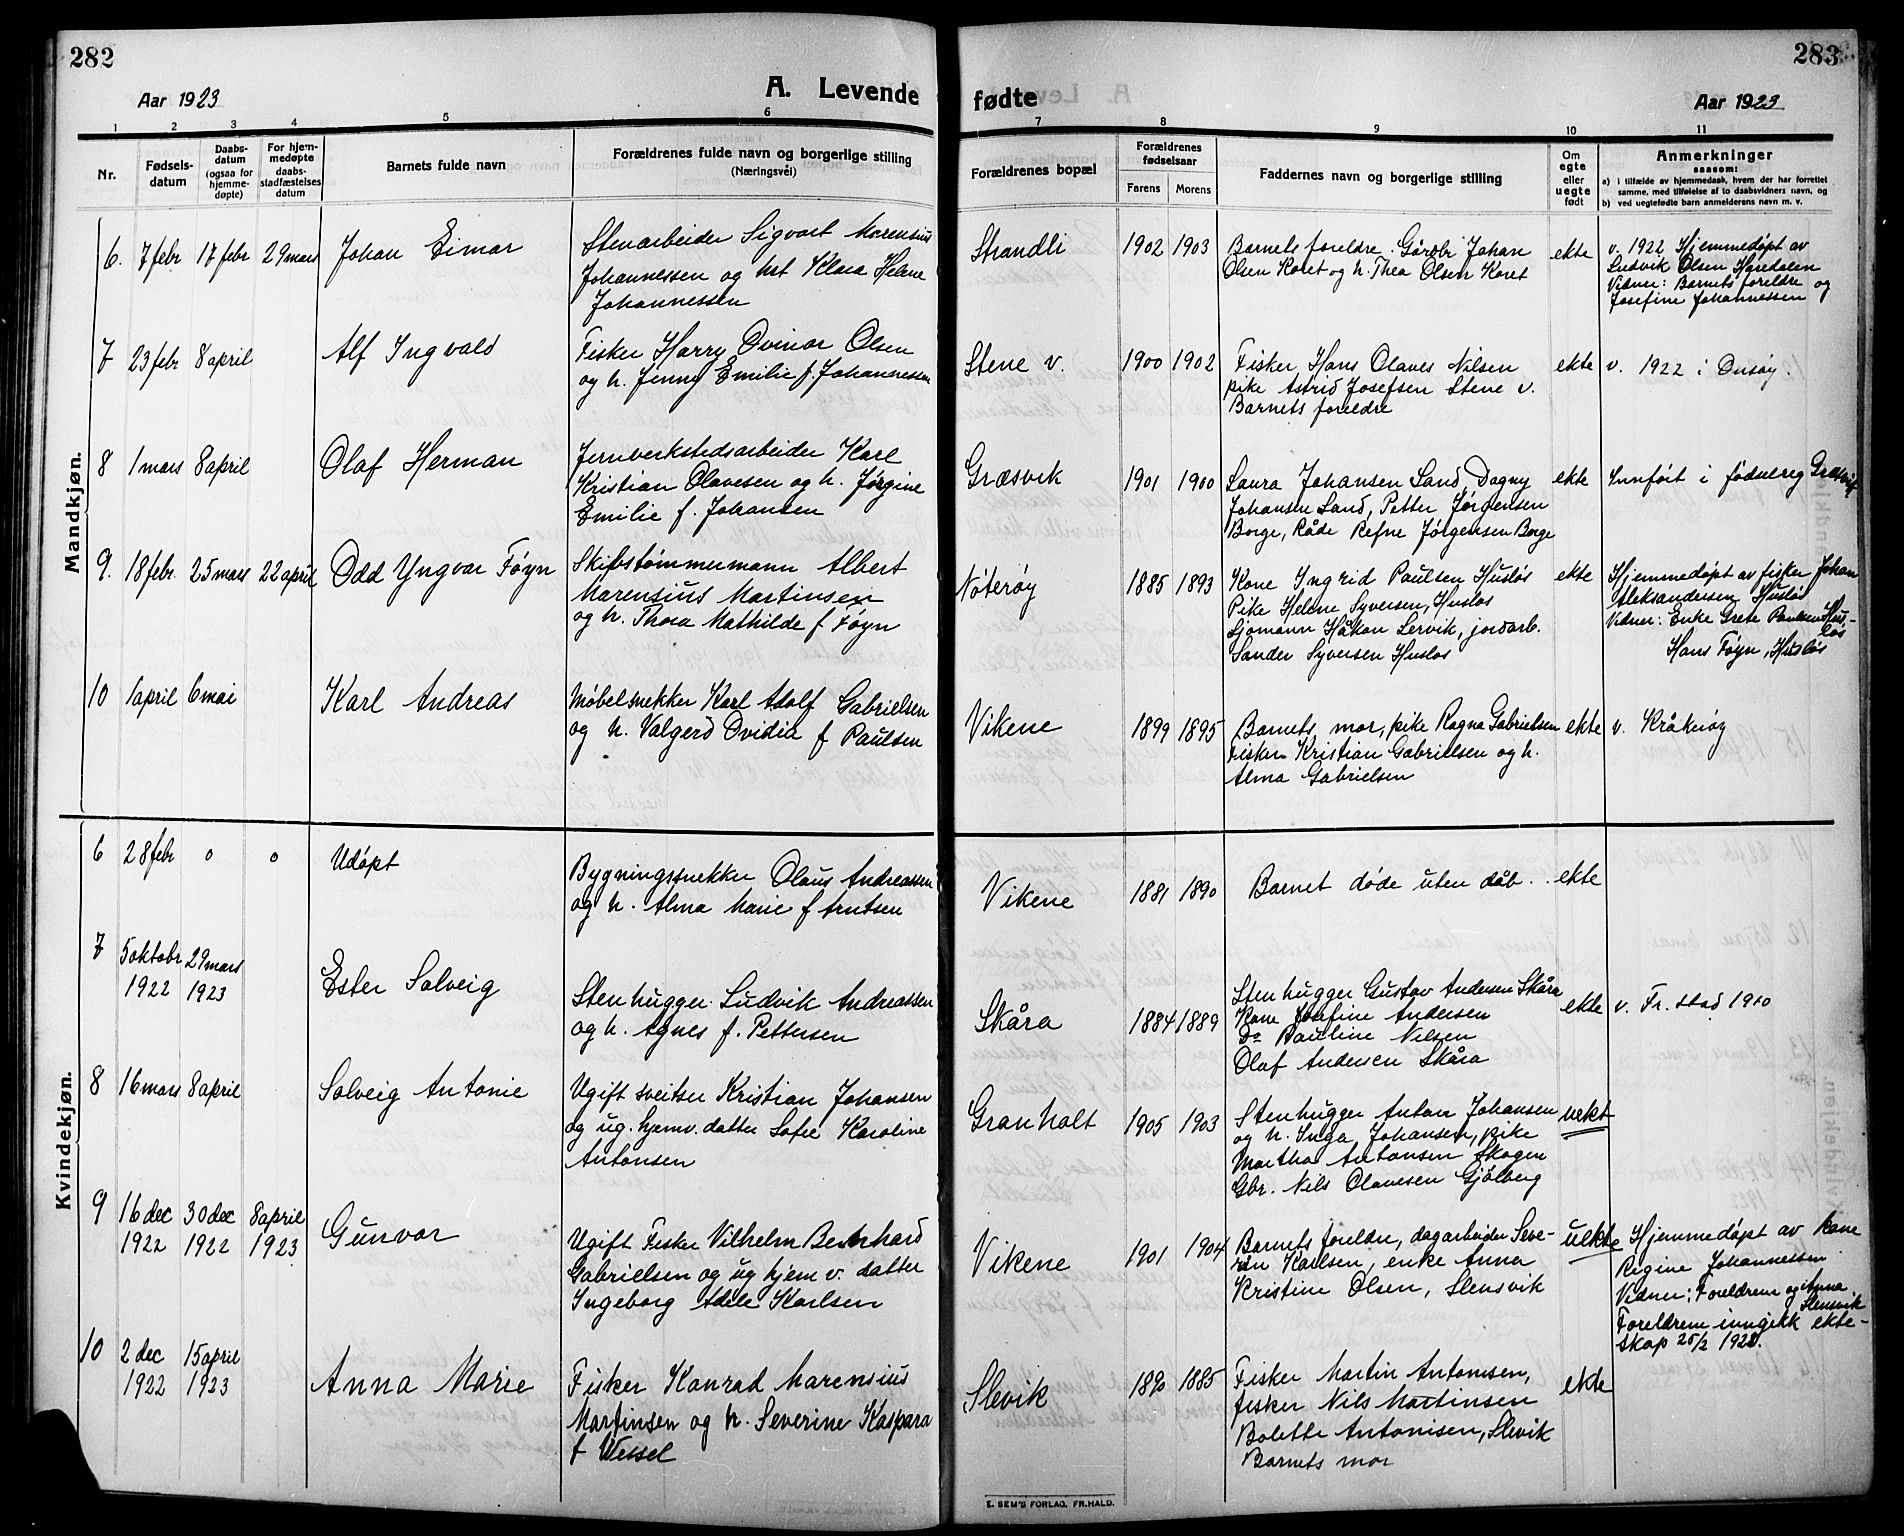 282
Aar 1923
A. Levende
1 2 3 4 5 6
Nr.
Fødsels-
datum
Daabs-
datum
(ogsaa for
hjemme-
døpte)
For hjem-
medøpte
daabs-
stadfæstelses
datum
Barnets fulde navn
Forældrenes fulde navn og borgerlige stilling
(Næringsvei)
Mandkjøn.
6. 7 febr 17 febr 29 mars Johan Eimar
Stenarbeider Sigvart Marensius
Johannessen og hst Klara Helene
Johannessen
7 23 febr 8 april Alf Ingvald
Fisker Harry Ovinar Olsen
og h. Jenny Emilie f. Johannessen
8 1 mars 8 april Olaf Herman
Jernverkstedsarbeider Karl
Kristian Olavesen og h. Jørgine
Emilie f. Johansen
9. 18 febr. 25 mars 22 april Odd Yngvar Føyn
Skibstømmermann Albert
Marensius Martinsen
og h. Thora Mathilde f Føyn
10 1 april 6 mai Karl Andreas
Møbelsnekker Karl Adolf Gabrielsen
og h. Valgerd Ovidia f Paulsen
Kvindekjøn.
6 28 febr o o Udøpt
Bygningssnekker Olaus Andreassen
og h. Alma Marie f Arntsen
7 5 oktobr 29 mars
1922 1923
Ester Solveig
Stenhugger Ludvik Andreassen
og h. Agnes f. Pettersen
8 16 mars 8 april Solveig Antonie
Ugift sveitser Kristian Johansen
og ug. hjemv. datter Sofie Karoline
Antonsen
9 16 dec 30 dec 8 april
1922 1922 1923
Gunvor
Ugift Fisker Vilhelm Bernhard
Gabrielsen og ug hjem v. datter
Ingeborg Adele Karlsen
10 2 dec 15 april
1922 1923
Anna Marie
Fisker Konrad Marensius
Martinsen og h. Severine Kaspara
f Wessel
283
fødte
Aar 1923
7 8 9 10 11
Forældrenes bopæl
Forældrenes
fødselsaar
Farens Morens
Faddernes navn og borgerlige stilling
Om
egte
eller
uegte
født
Anmerkninger
saasom:
a) i tilfælde av hjemmedaab, hvem der har forrettet
samme, med tilføielse af to daabsvidners navn, og
b) ved uegtefødte barn anmelderens navn m. v.
Strandli 1902 1903
Barnets foreldre, Gårdbr Johan
Olsen Koret og h. Thea Olsen Koret
ekte
v. 1922 Hjemmedøpt av
Ludvik Olsen Haredalen
Vidner: Barnets foreldre og
Josefine Johannessen
Stene v. 1900 1902
Fisker Hans Olaves Nilsen
pike Astrid Josefsen Stene v.
Barnets foreldre
ekte
v. 1922 i Onsøy.
Græsvik 1901 1900
Laura Johansen Sand, Dagny
Johansen Sand, Petter Jørgensen
Borge, Råde Refne Jørgensen Borge
ekte
Innført i fødselreg Græsvik
Nøterøy 1885 1893
Kone Ingrid Paulsen Husløs
Pike Helene Syversen, Husløs
Sjømann Håkon Lervik, jordarb.
Sander Syversen Husløs
ekte
Hjemmedøpt av fisker Johan
Aleksandersen Husløs
Vidner: Enke Grete Paulsen Hus-
løs
Hans Føyn, Husløs
Vikene 1899 1895
Barnets mor, pike Ragna Gabrielsen
Fisker Kristian Gabrielsen og h.
Alma Gabrielsen
ekte
v. Kråkerøy
Vikene 1881 1890
Barnet døde uten dåb.
ekte
Skåra 1884 1889
Stenhugger Gustav Andersen Skåra
Kone Josefine Andersen
Do Pauline Nilsen
Olaf Andersen Skåra
ekte
v. Fr.stad 1910
Granholt 1905 1903
Stenhugger Anton Johansen
og h. Inga Johansen, pike
Martha Antonsen Skogen
Gbr. Nils Olavesen Gjølberg
uekt
Vikene 1901 1904
Barnets foreldre, dagarbeider Seve-
rin Karlsen, enke Anna
Kristine Olsen, Slensvik
uekte
Hjemmedøpt av kone
Regine Johannessen
Vidner: Foreldrene og Anna
Slensvik
Foreldrene inngikk ekte-
skap 25/2 1923.
Slevik 1890 1885
Fisker Martin Antonisen,
fisker Nils Martinsen
Bolette Antonisen, Slevik
Barnets mor
ekte
E. SEM'S FORLAG, FR.HALD.